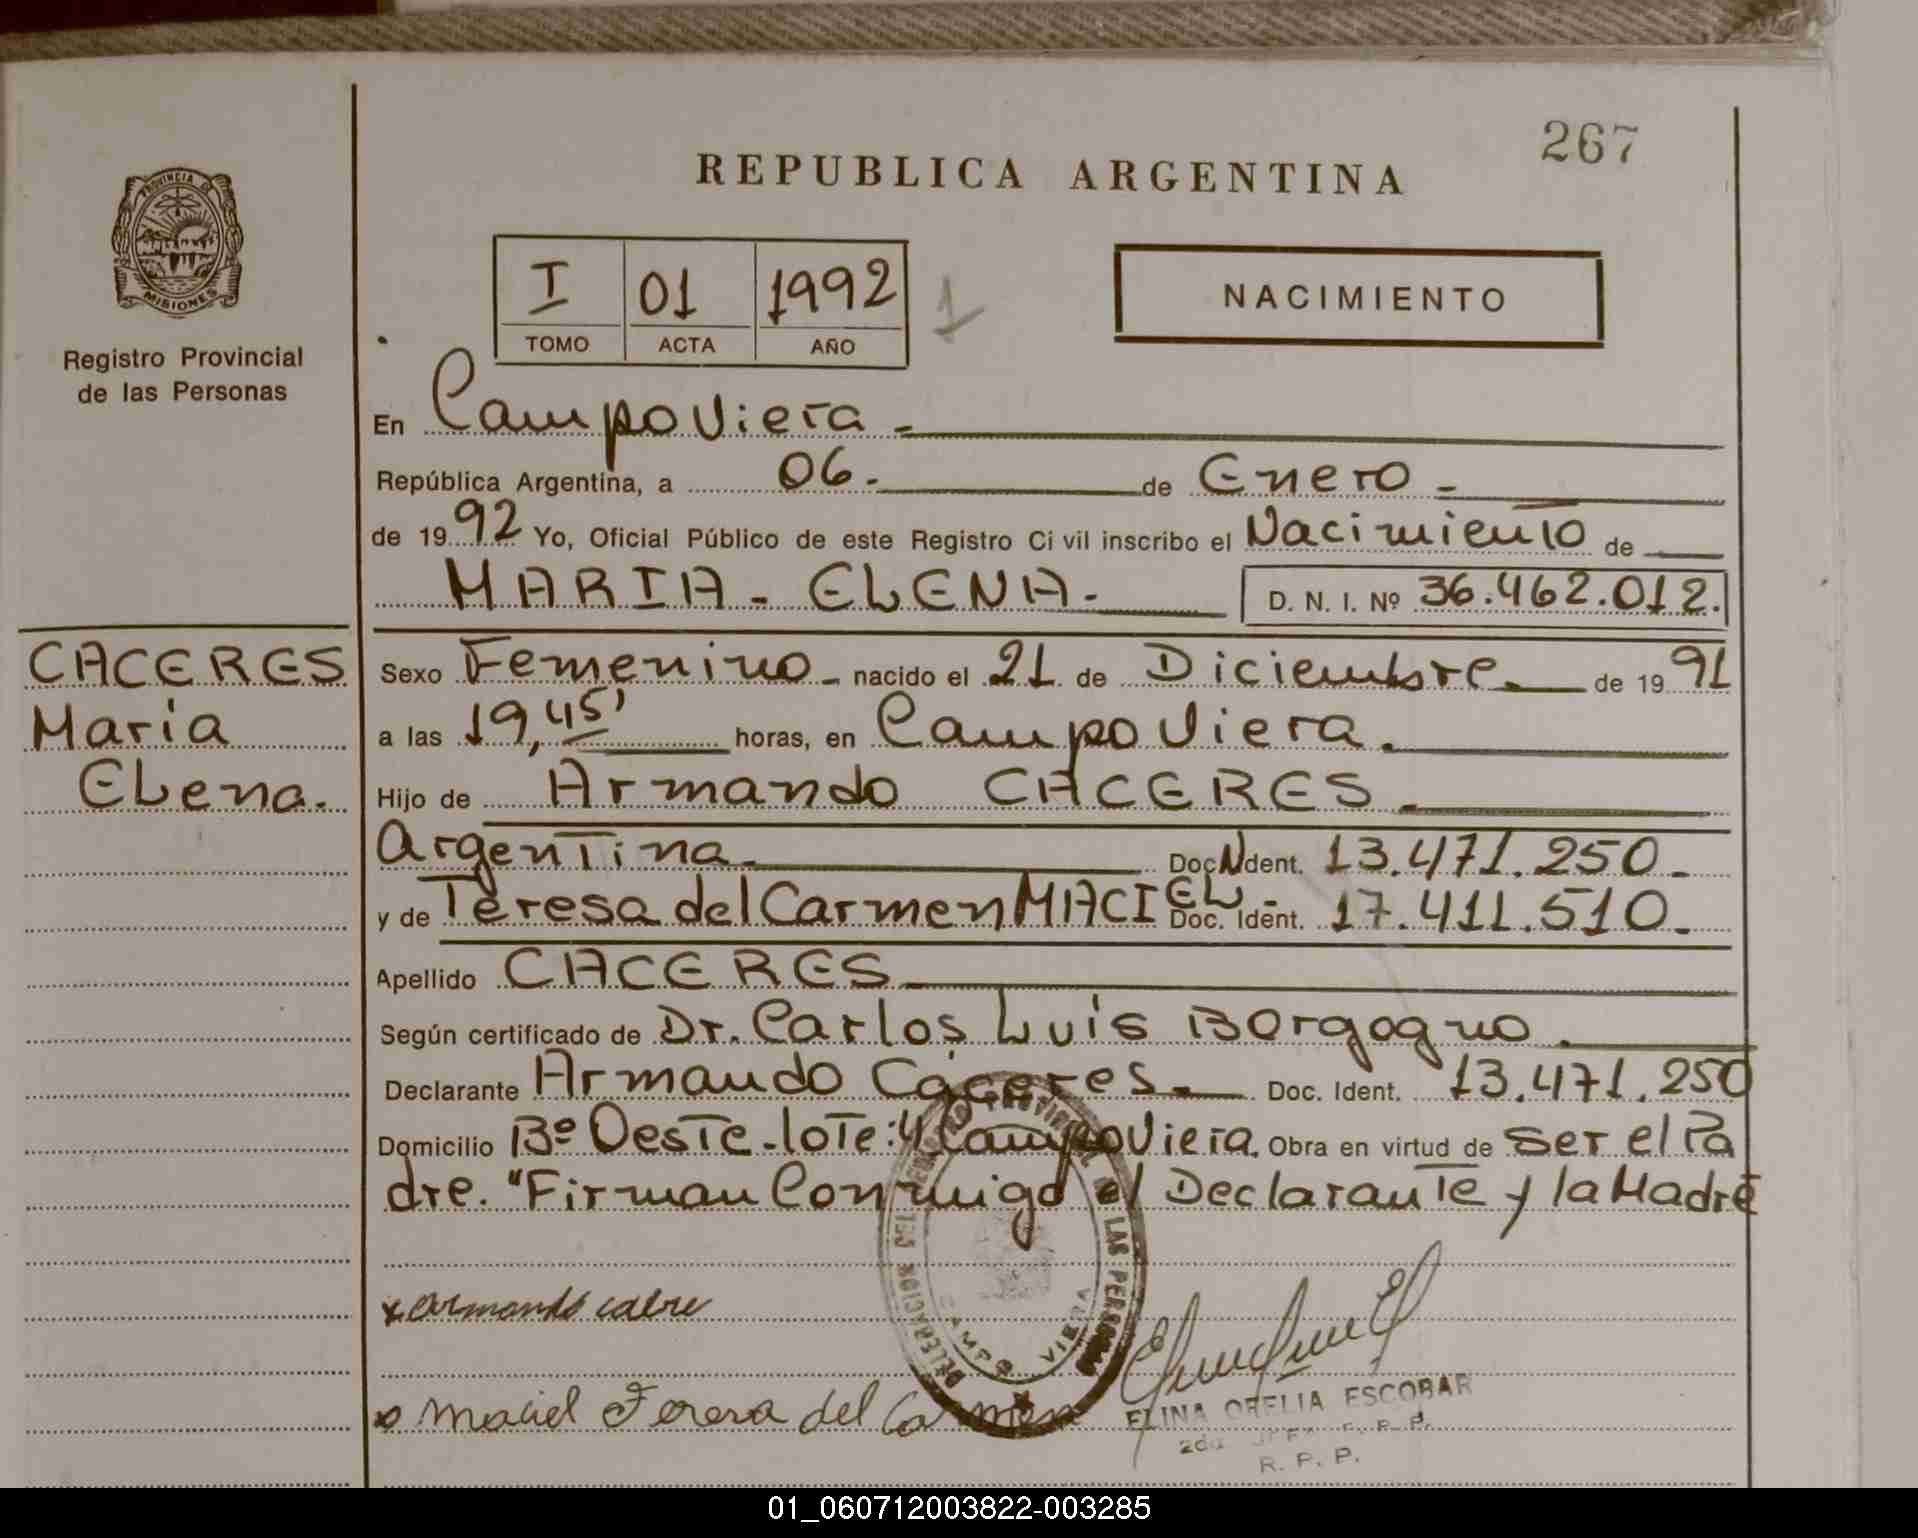 267
REPUBLICA ARGENTINA
PROVINCIA DE
MISIONES
Registro Provincial
de las Personas
I 01 1992 1
TOMO ACTA AÑO
NACIMIENTO
En Campo Viera -
República Argentina, a 06.- de Enero -
de 1992 Yo, Oficial Público de este Registro Civil inscribo el Nacimiento de
MARIA - ELENA - D. N. I. Nº 36.462.012.
CACERES
María
Elena.
Sexo Femenino - nacido el 21 de Diciembre - de 1991
a las 19,45' horas, en Campo Viera.
Hijo de Armando CACERES -
Argentina - Doc. N Ident. 13.471.250 -
y de Teresa del Carmen MACIEL - Doc. Ident. 17.411.510 -
Apellido CACERES -
Según certificado de Dr. Carlos Luis Borgogno.
Declarante Armando Cáceres - Doc. Ident. 13.471.250
Domicilio Bº Oeste - lote: 4 Campo Viera. Obra en virtud de ser el Pa
dre. "Firman Conmigo el Declarante y la Madre
DELEGACION DEL REGISTRO PROVINCIAL DE LAS PERSONAS
CAMPO VIERA
x Armando
Maciel Teresa del Carmen
ELINA OFELIA ESCOBAR
2da JEFA
R. P. P.
01_060712003822-003285